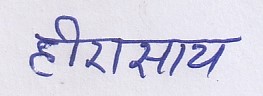 हीरासाय